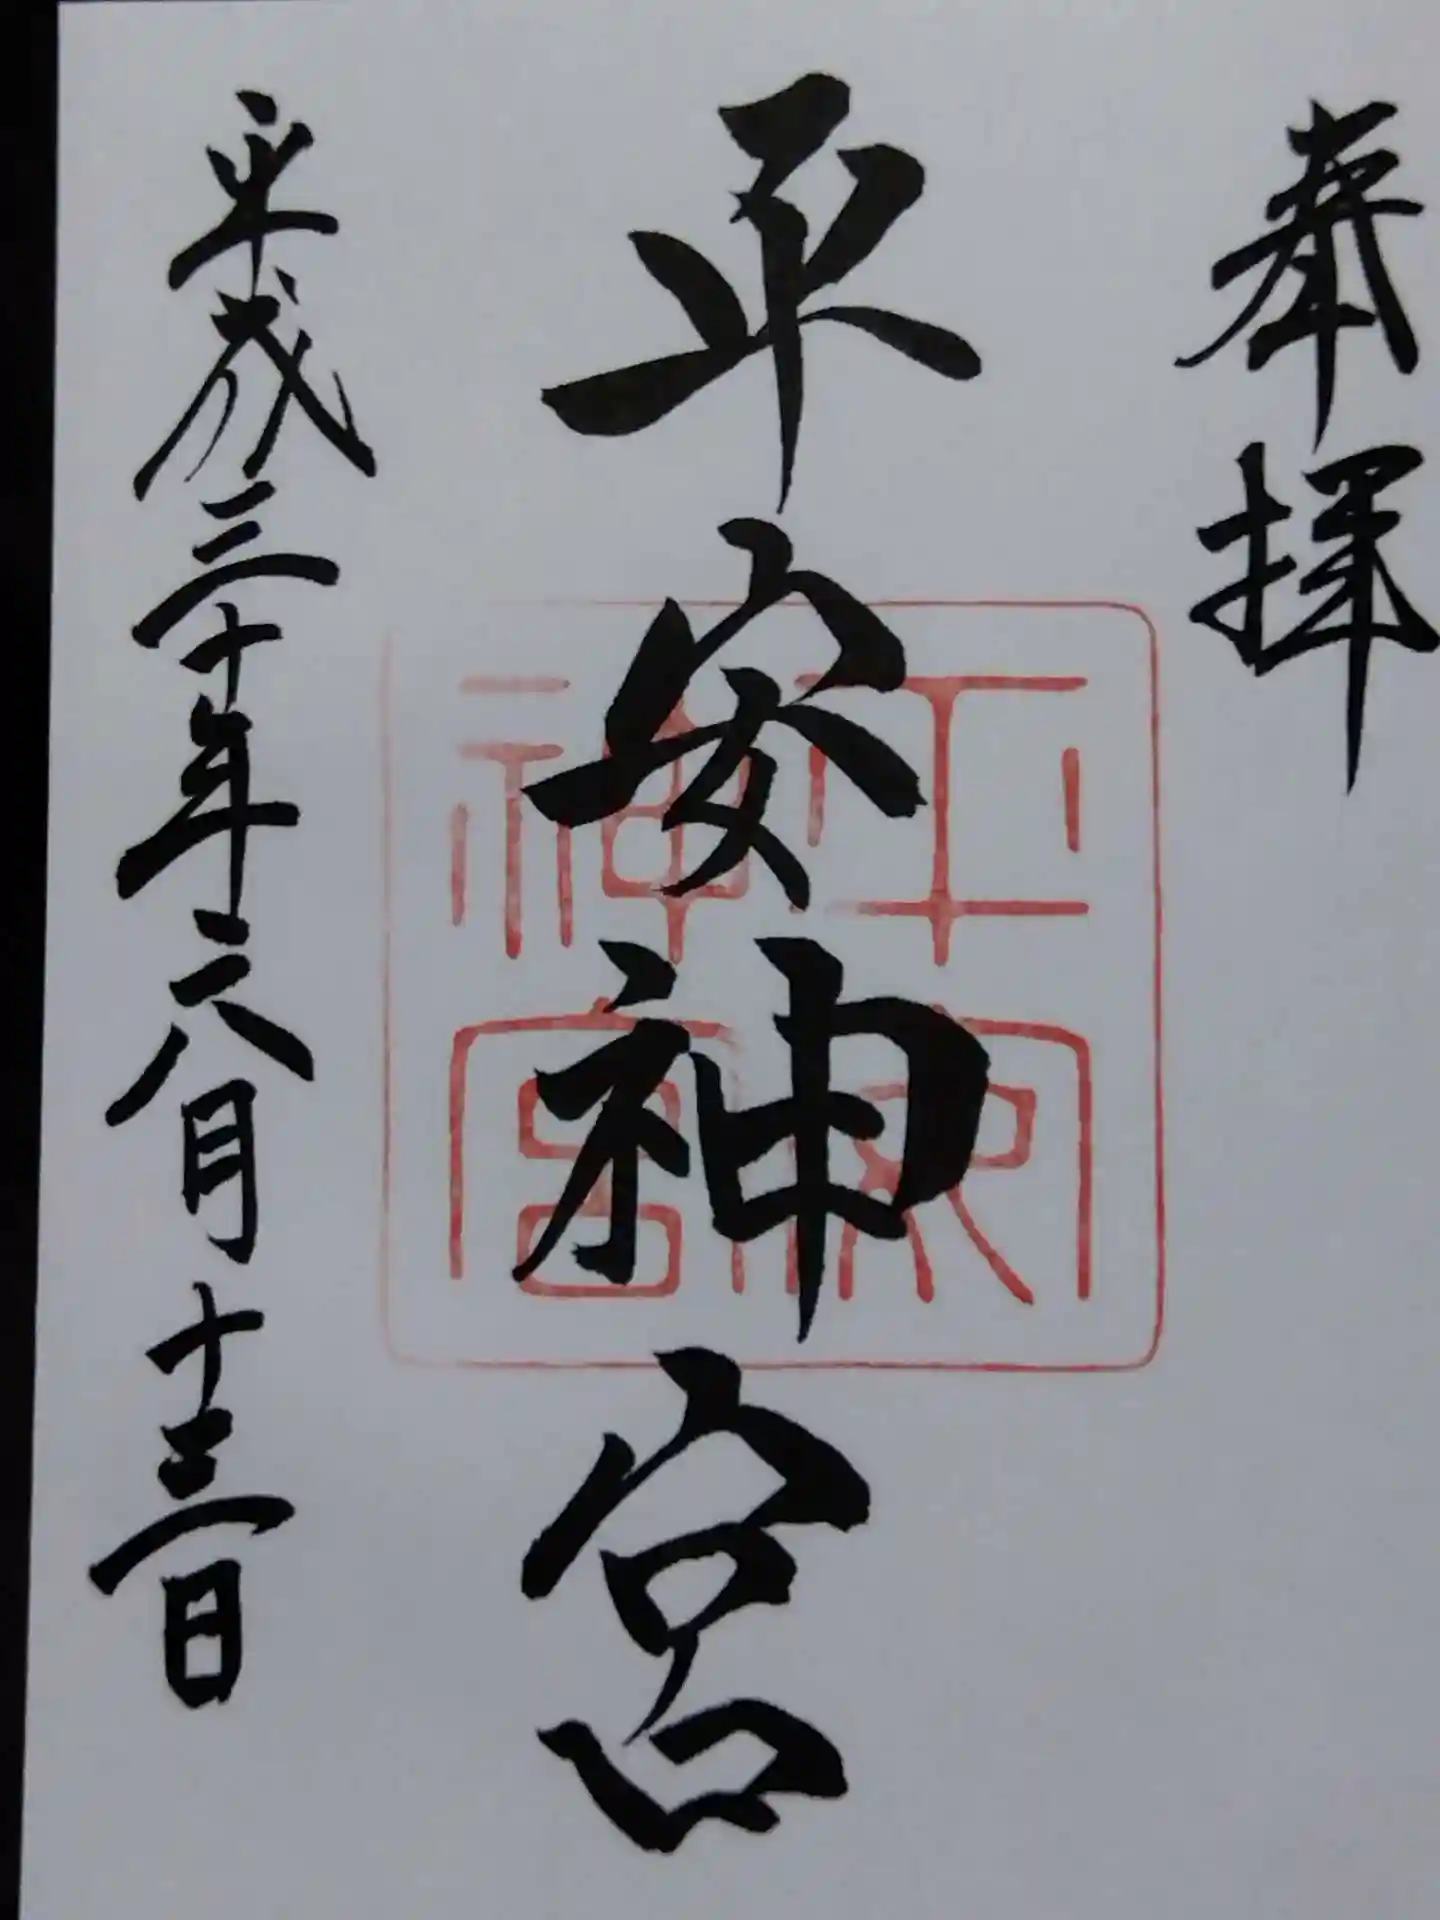 奉拝
平安神宮
平安
神宮
平成三十年六月十三日